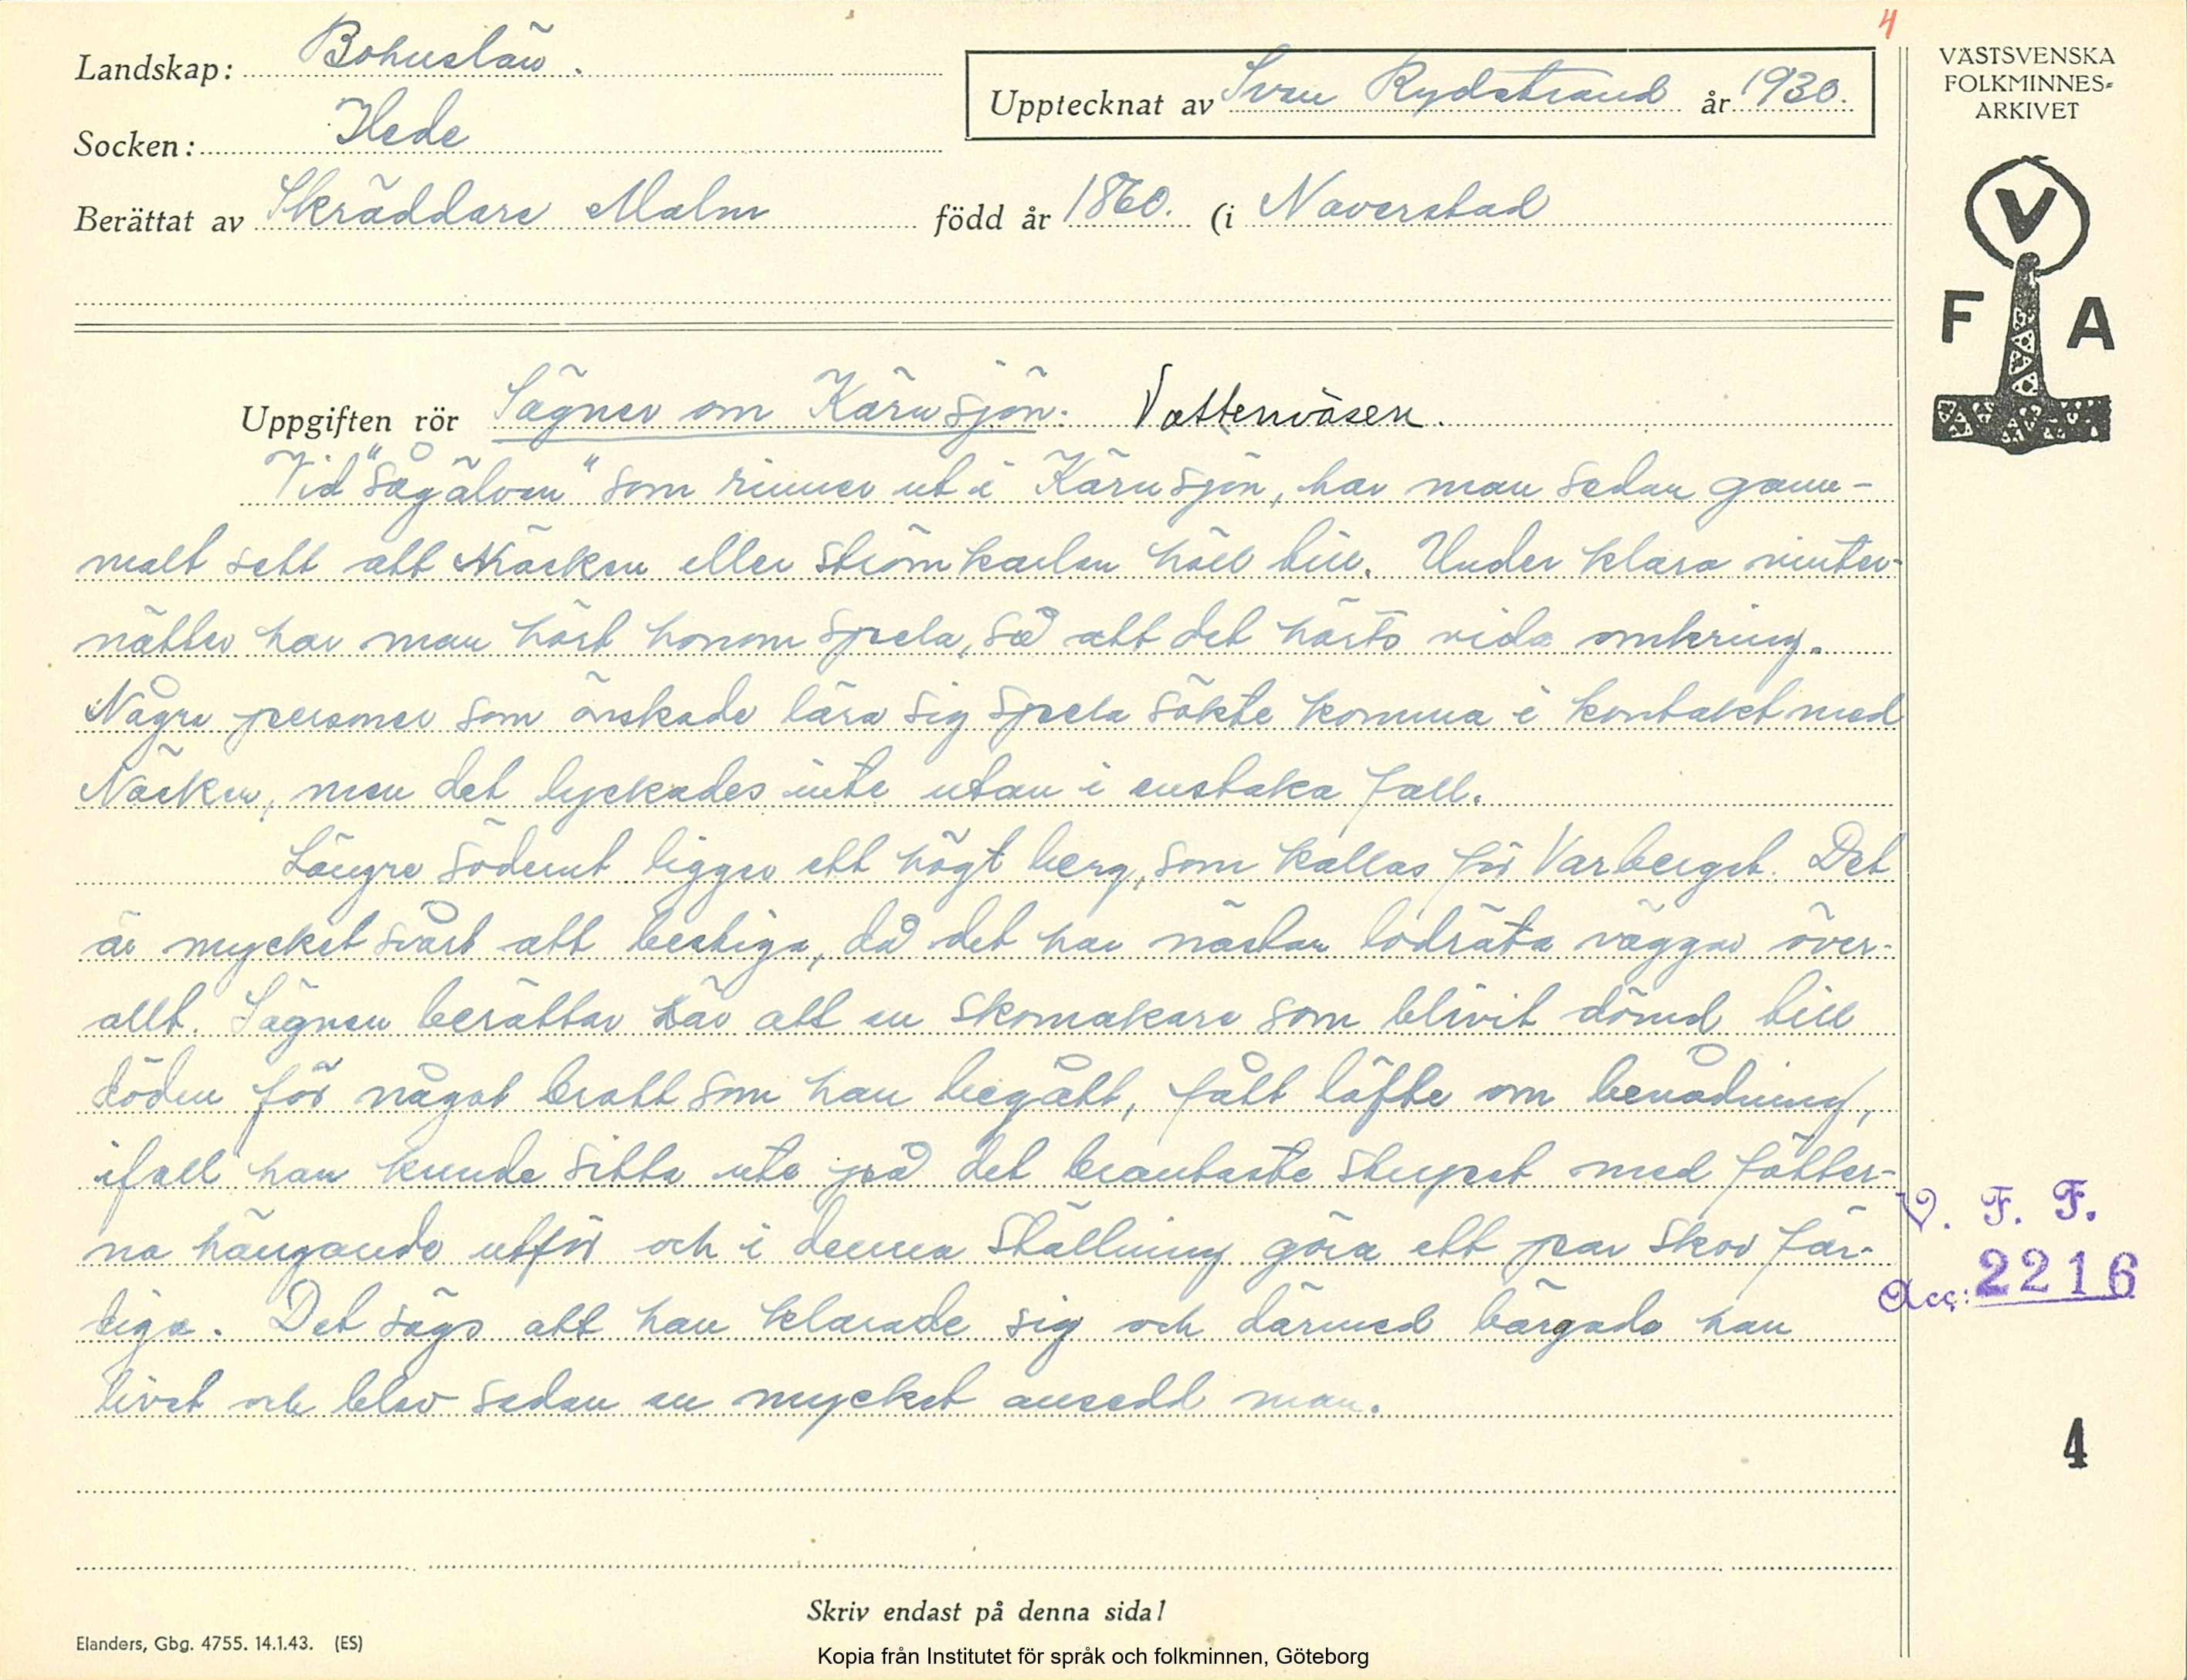 4
Landskap: Bohuslän.
Socken: Hede
Berättat av Skräddare Malm född år 1860. (i Naverstad
Upptecknat av Sven Rydstrand år 1930.
VÄSTSVENSKA
FOLKMINNES-
ARKIVET
V
F A
Uppgiften rör Sägner om Kärnsjön. Vattenväsen.
Vid "Sågälven" som rinner ut i Kärnsjön, har man sedan gam-
malt sett att Näcken eller strömkarlen höll till. Under klara vinter-
nätter har man hört honom spela, så att det hörts vida omkring.
Några personer som önskade lära sig spela sökte komma i kontakt med
Näcken, men det lyckades inte utan i enstaka fall.
Längre söderut ligger ett högt berg, som kallas för Varberget. Det
är mycket svårt att bestiga, då det har nästan lodräta väggar över-
allt. Sägnen berättar här att en skomakare som blivit dömd till
döden för något brott som han begått, fått löfte om benådning,
ifall han kunde sitta ute på det brantaste stupet med fötter-
na hängande utför och i denna ställning göra ett par skor fär-
diga. Det sägs att han klarade sig och därmed bärgade han
livet och blev sedan en mycket ansedd man.
V. F. F.
Acc: 2216
4
Skriv endast på denna sida!
Elanders, Gbg. 4755. 14.1.43. (ES)
Kopia från Institutet för språk och folkminnen, Göteborg